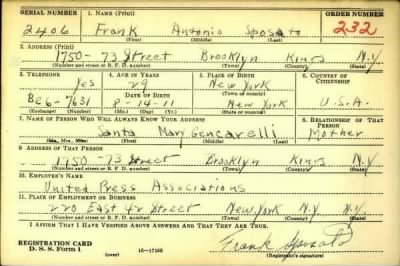 SERIAL NUMBER 1. NAME (Print) ORDER NUMBER
2406 Frank Antonio Sposato 232
(First) (Middle) (Last)
2. ADDRESS (Print)
1750 - 73 Street Brooklyn Kings N.Y
(Number and street or R. F. D. number) (Town) (County) (State)
3. TELEPHONE 4. AGE IN YEARS 5. PLACE OF BIRTH 6. COUNTRY OF CITIZENSHIP
Yes 29 New York
DATE OF BIRTH (Town or county)
Be 6-7631 8-14-11 New York U.S.A.
(Exchange) (Number) (Mo.) (Day) (Yr.) (State or country)
7. NAME OF PERSON WHO WILL ALWAYS KNOW YOUR ADDRESS 8. RELATIONSHIP OF THAT PERSON
Santa Mary Gencavelli Mother
(Mr., Mrs., Miss) (First) (Middle) (Last)
9. ADDRESS OF THAT PERSON
1750 - 73 Street Brooklyn Kings N.Y
(Number and street or R. F. D. number) (Town) (County) (State)
10. EMPLOYER'S NAME
United Press Associations
11. PLACE OF EMPLOYMENT OR BUSINESS
220 East 42 Street New York N.Y N.Y
(Number and street or R. F. D. number) (Town) (County) (State)
I AFFIRM THAT I HAVE VERIFIED ABOVE ANSWERS AND THAT THEY ARE TRUE.
REGISTRATION CARD
D. S. S. Form 1 16-17105 Frank Sposato
(over) (Registrant's signature)